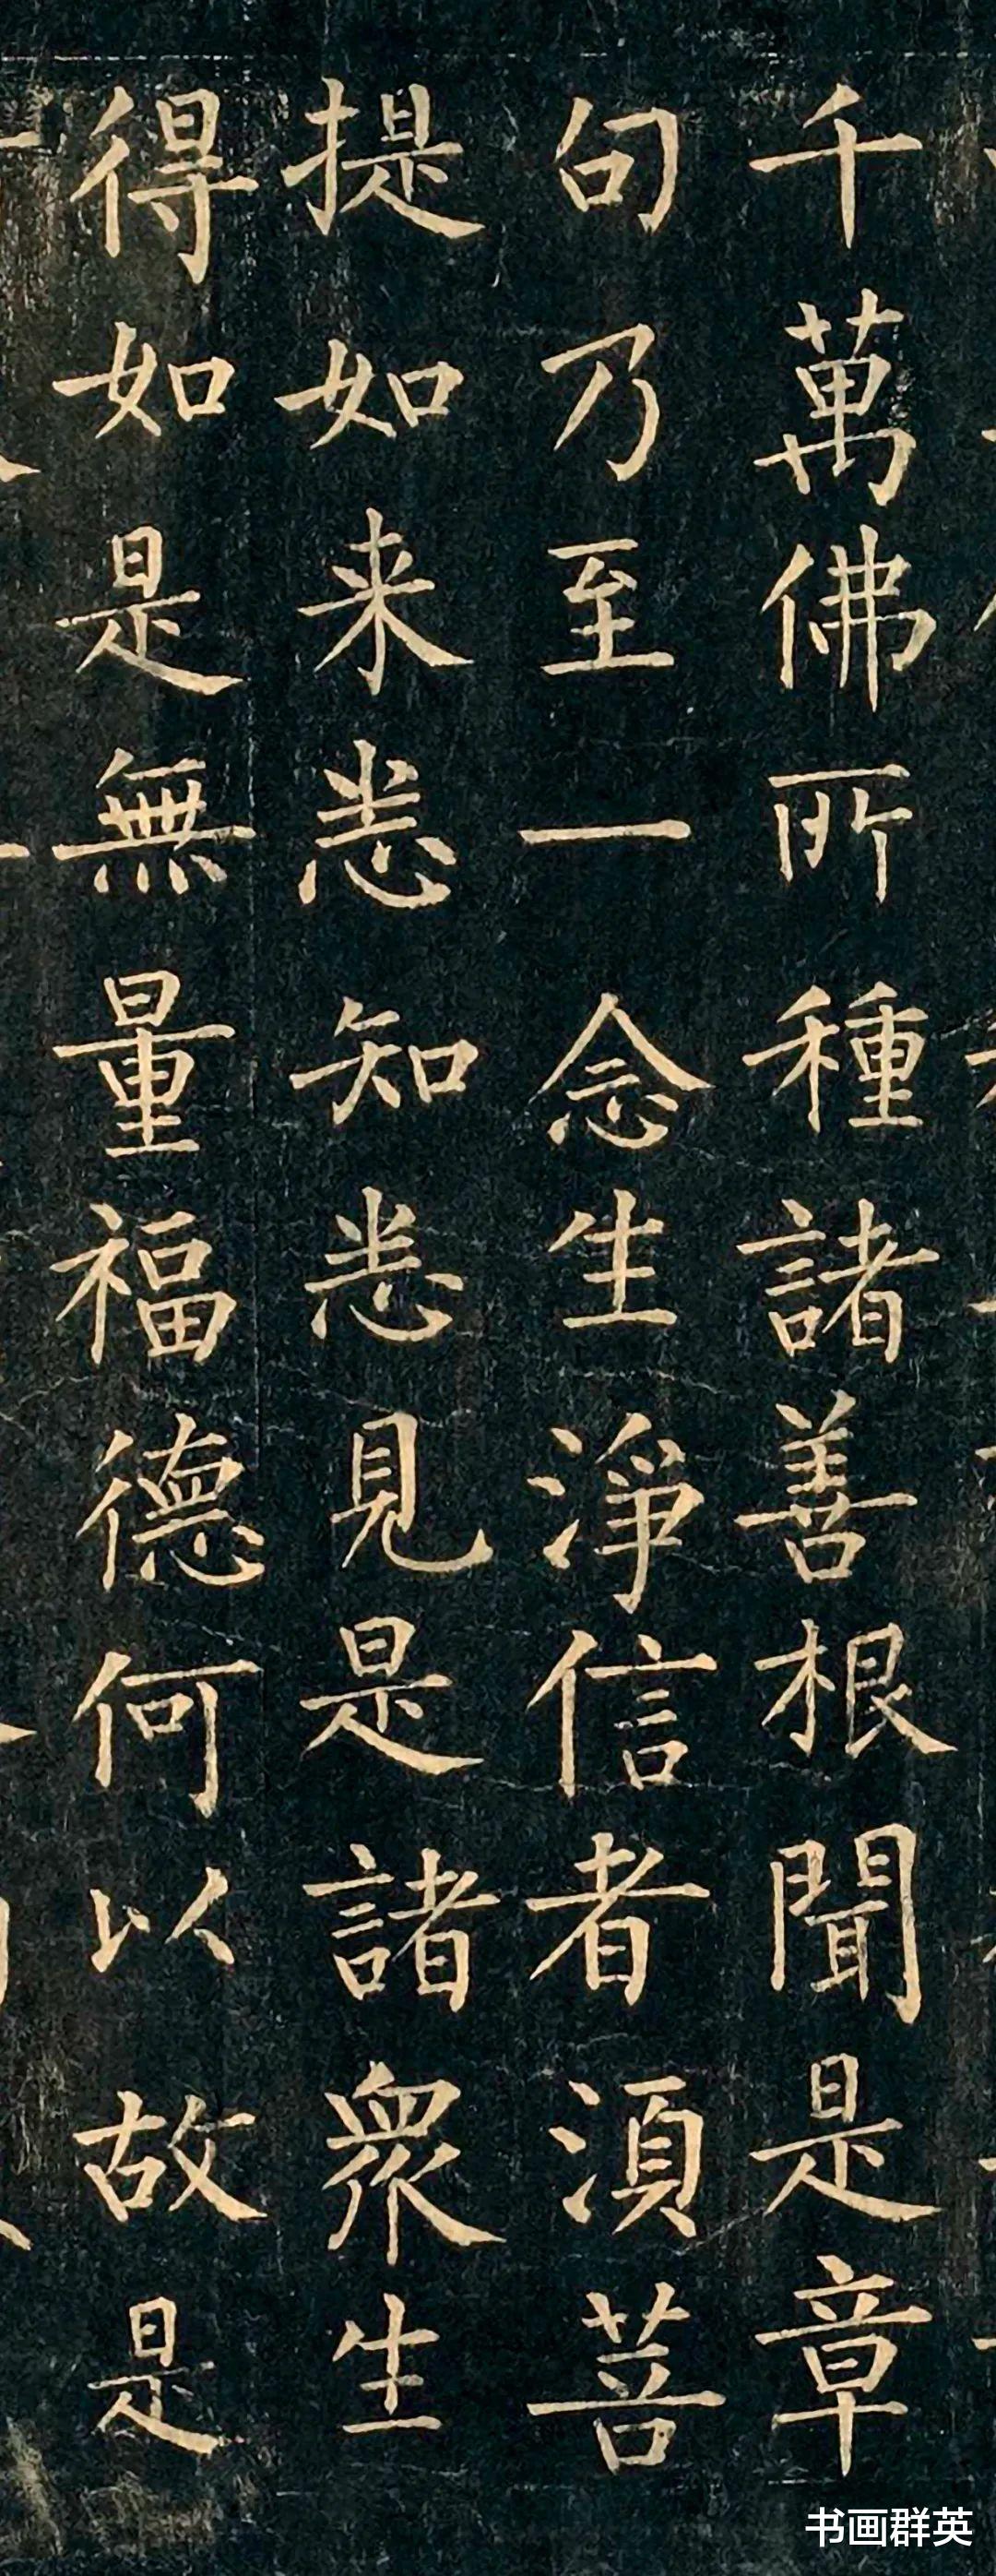 千萬佛所種諸善根聞是章
句乃至一念生淨信者須菩
提如来悉知悉見是諸衆生
得如是無量福德何以故是
书画群英